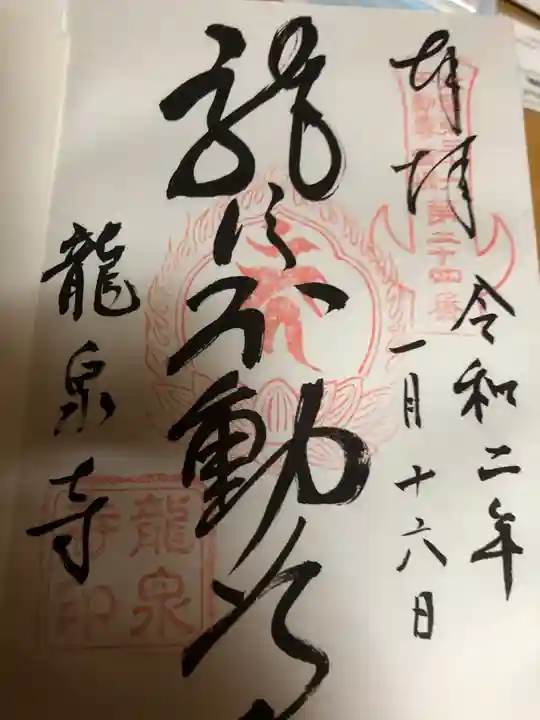 奉拝
令和二年
一月十六日
第二十四番
龍
不動
龍泉寺
龍泉
寺印